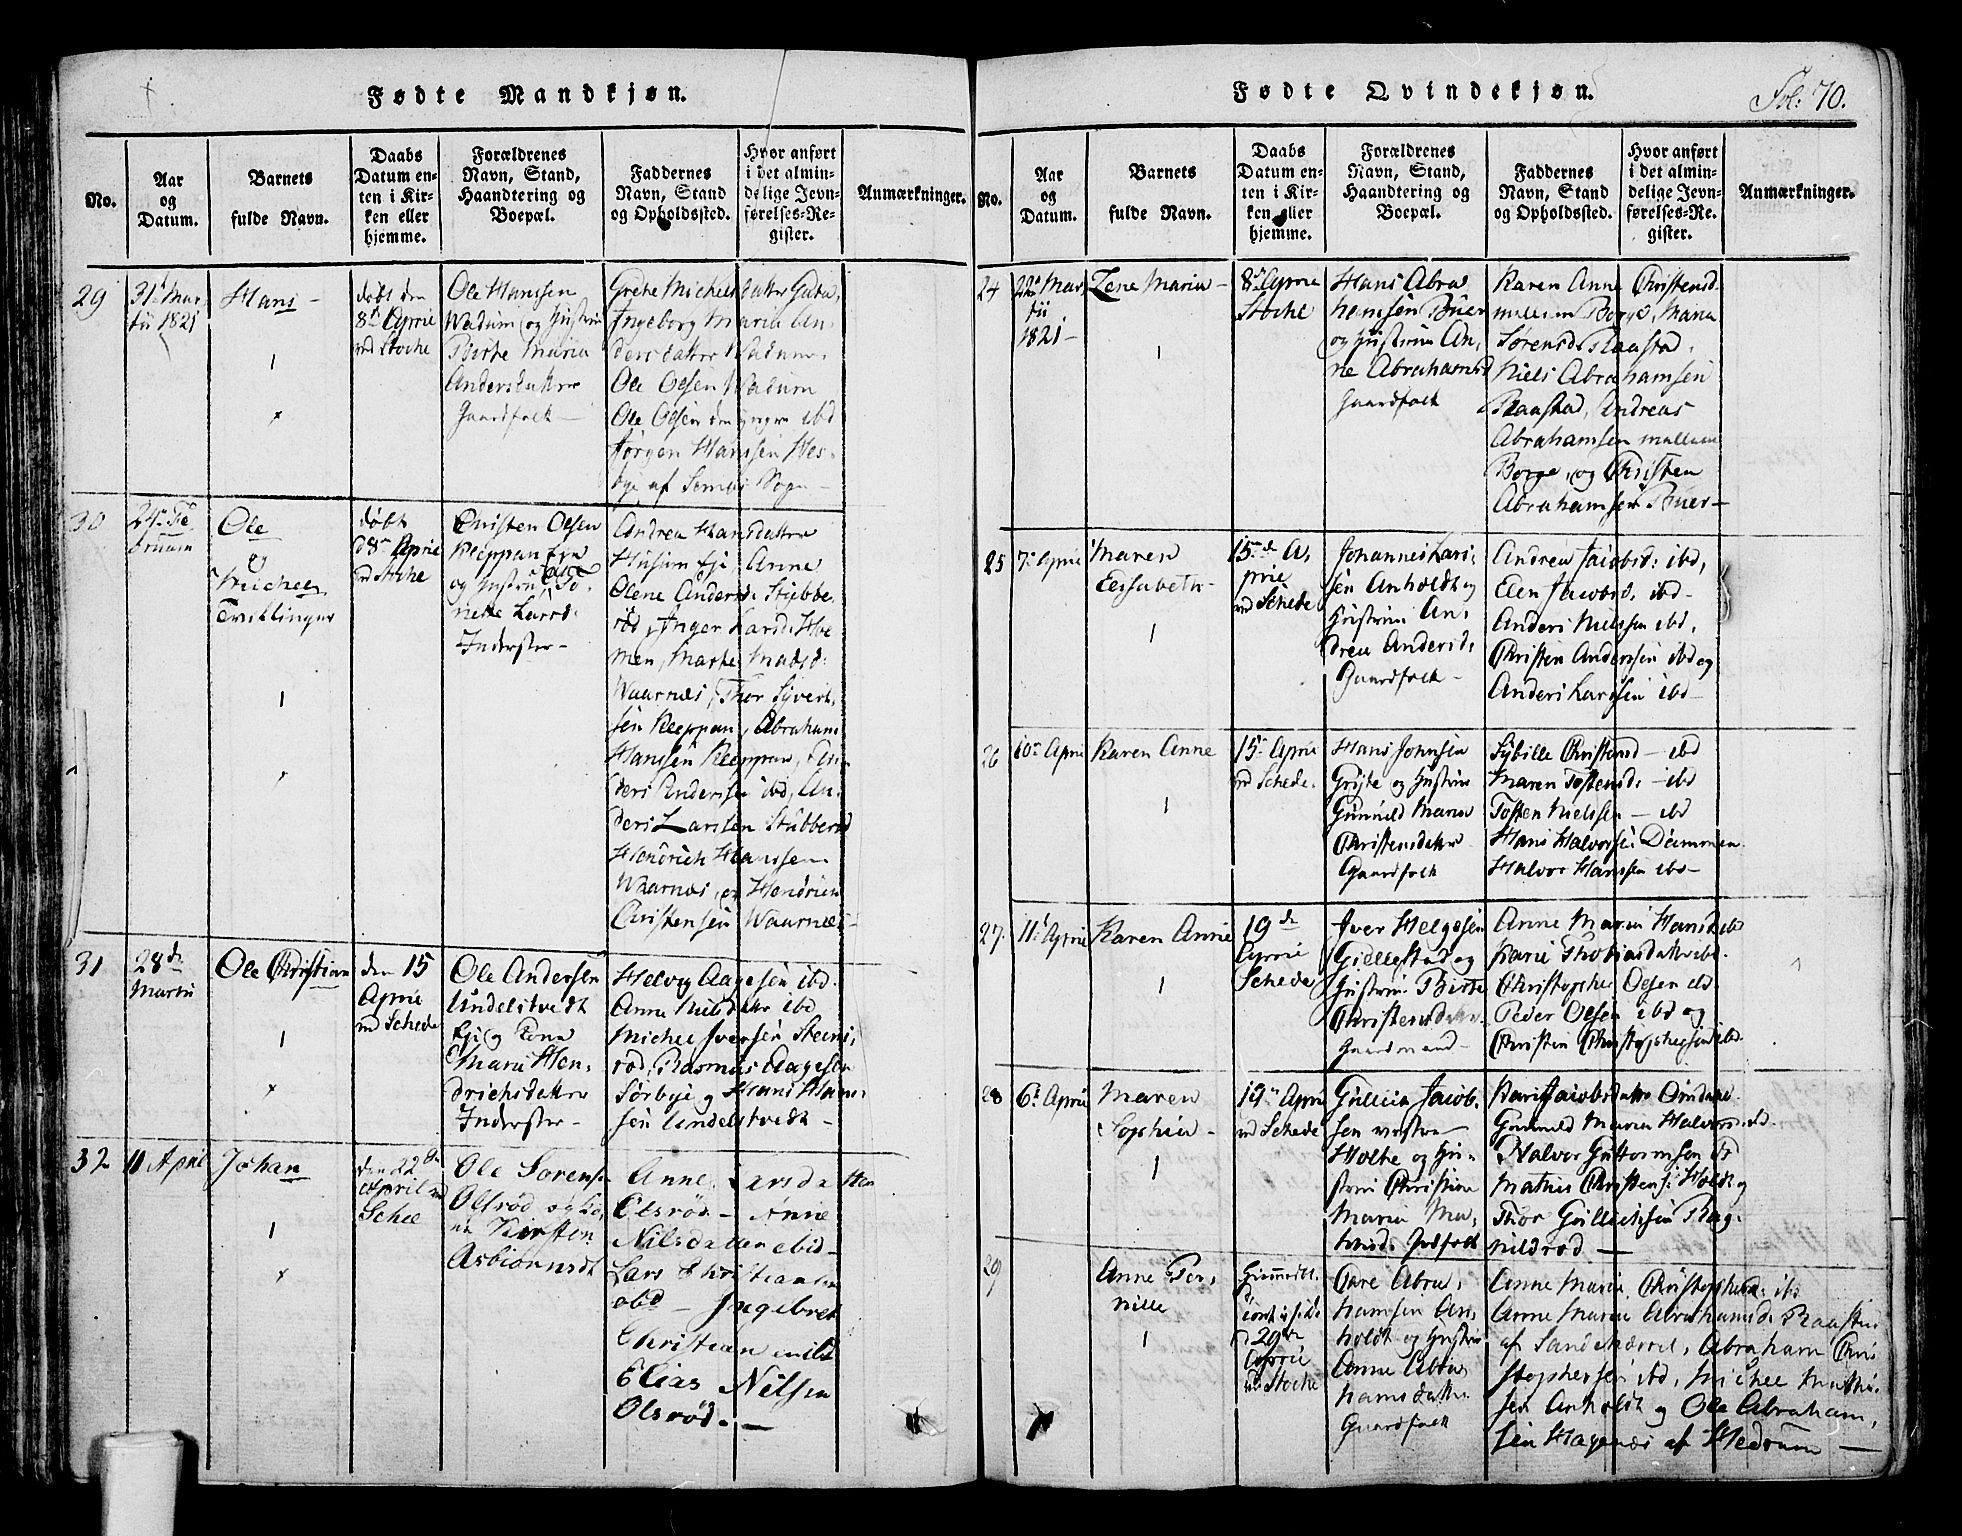 Fødte Mandkjøn.
No.
Aar
og
Datum.
Barnets
fulde Navn.
Daabs
Datum en-
ten i Kir-
ken eller
hjemme.
Forældrenes
Navn, Stand,
Haandtering og
Boepæl.
Faddernes
Navn, Stand
og Opholdssted.
Hvor anført
i det almin-
delige Jevn-
førelses-Re-
gister.
Anmærkninger.
29
31 Mar
tii 1821
Hans -
1
døbt den
8de Aprie
ved Stoche
Ole Hanssen
Wadum og Hustrue
Birte Maria
Andersdatter
Gaardfolk -
Grethe Michelsdatter
Ingeborg Maria An-
dersdatter Wadum
Ole Olsen Wadum
Ole Olsen den yngre ibd
Jørgen Hanssen Wes-
bye af Semms Sogn -
30
24de Fe
bruarii
Ole
og
Michel
Tvillinger
1
døbt
d 8de Aprie
ved Stoche
Christen Olsen
Kleppan
og Hustrue
nette Larsd:
Inderster -
Andrea Hansdatter
Husum eje, Anne
Olene Andersd. Stubbe-
rød, Inger Larsd:
men, Marte Madsd:
Waarnæs, Thor Syvert-
sen Kleppan, Abraham
Hanssen Kleppan, An-
ders Anderssen ibd, An-
ders Larssen Stubberød
Hendrich Hanssen
Waarnæs, og Hendrich
Christensen Waarnæs -
31
28de
Martii
Ole Christian
1
den 15
Aprie
ved Schede
Ole Andersen
Undelstvedt
eje og Kona
Maria Hen-
drichsdatter
Inderster -
Helvig Aagesen ibd.
Anne Nilsdatter ibd
Michel Iversen Steens-
rød, Rasmus Aagesen
Sørbye og Hans Han-
sen Undelstvedt -
32
11 April
Johan
1
den 22de
April ved
Schee
Ole Sørensen
Olsrød og Ko-
na Kirsten
Asbiørnsdt
Anne Larsdatter
Olsrød - Anne
Nilsdatter ibid -
Lars Christiansen
ibd - Ingebret
Christian
Elias Nilsen
Olsrød. -
Fødte Qvindekjøn.
Fol: 70.
No.
Aar
og
Datum.
Barnets
fulde Navn.
Daabs
Datum en-
ten i Kir-
ken eller
hjemme.
Forældrenes
Navn, Stand,
Haandtering og
Boepæl.
Faddernes
Navn, Stand
og Opholdssted.
Hvor anført
i det almin-
delige Jevn-
førelses-Re-
gister.
Anmærkninger.
24
22 Mar
tii
1821 -
Lene Maria -
1
8de Aprie
Stoche
Hans Abra
hamsen Buer
og Hustrue An-
ne Abrahamsd
Gaardfolk
Karen Anne Christensd
mellem Borge, Maria
Sørensd. Raastad,
Niels Abrahamsen
Raastad, Andreas
Abrahamsen mellem
Borge, og Christen
Abrahamsen Buer -
25
7de Aprie
Maren
Elisabeth -
1
15de A-
prie
ved Schede
Johannes Lars-
sen Anholdt og
Hustrue An-
drea Andersd.
Gaardfolk -
Andrea Jacobsd: ibd,
Elen Jacobsd. ibd -
Anders Nielssen ibd,
Christen Anderssen ibd og
Anders Larssen ibd -
26
10de Aprie
Karen Anne
1
15 Aprie
ved Schede.
Hans Johnsen
og Hustrue
Gunnild Maria
Christensdatter
Gaardfolk
Sybille Christensd - ibd
Maren Toftensd: - ibd
Toften Nielssen - ibd
Hans Halvorsen Dammen
Halvor Hanssen ibd -
27.
11te Aprie
Karen Anne
1
19de
Aprie
Schede
Iver Helgesen
Gillestad og
Hustrue Birte
Christensdatter
Gaardmænd -
Anne Maria Hansd ibd
Karie Thobiasdatter ibd.
Christopher Olsen ibd
Peder Olsen ibd og
Christen Christophersen ibd.
28
6te Aprie
Maren
Sophia -
1
19de Aprie
ved Schede
Gullich Jacob-
sen vestre -
Holte og Hu-
strue Christine
Maria Ma-
thisd: Jndfolk
Kari Jacobsdatter
Gunnild Maria Halvorsd ibd.
Halvor Guttormsen ibd
Mathis Christensen Holdt og
Thor Gullichsen Rag-
nildrød -
29
Anne Per-
nille
1
Hjemmedøbt
29de
Aprie
ved Stoche
Ole Abra-
hamsen An-
holdt og Hustrue
Anne Abra-
hamsdatter
Gaardfolk
Anne Marie Christophersd. ibd
Anne Maria Abrahamsd: Raastad
af Sandeherred, Abraham Chri-
stophersen ibd, Michel Mathi-
sen Anholdt og Ole Abraham-
sen Hagenæs af Hedrum -